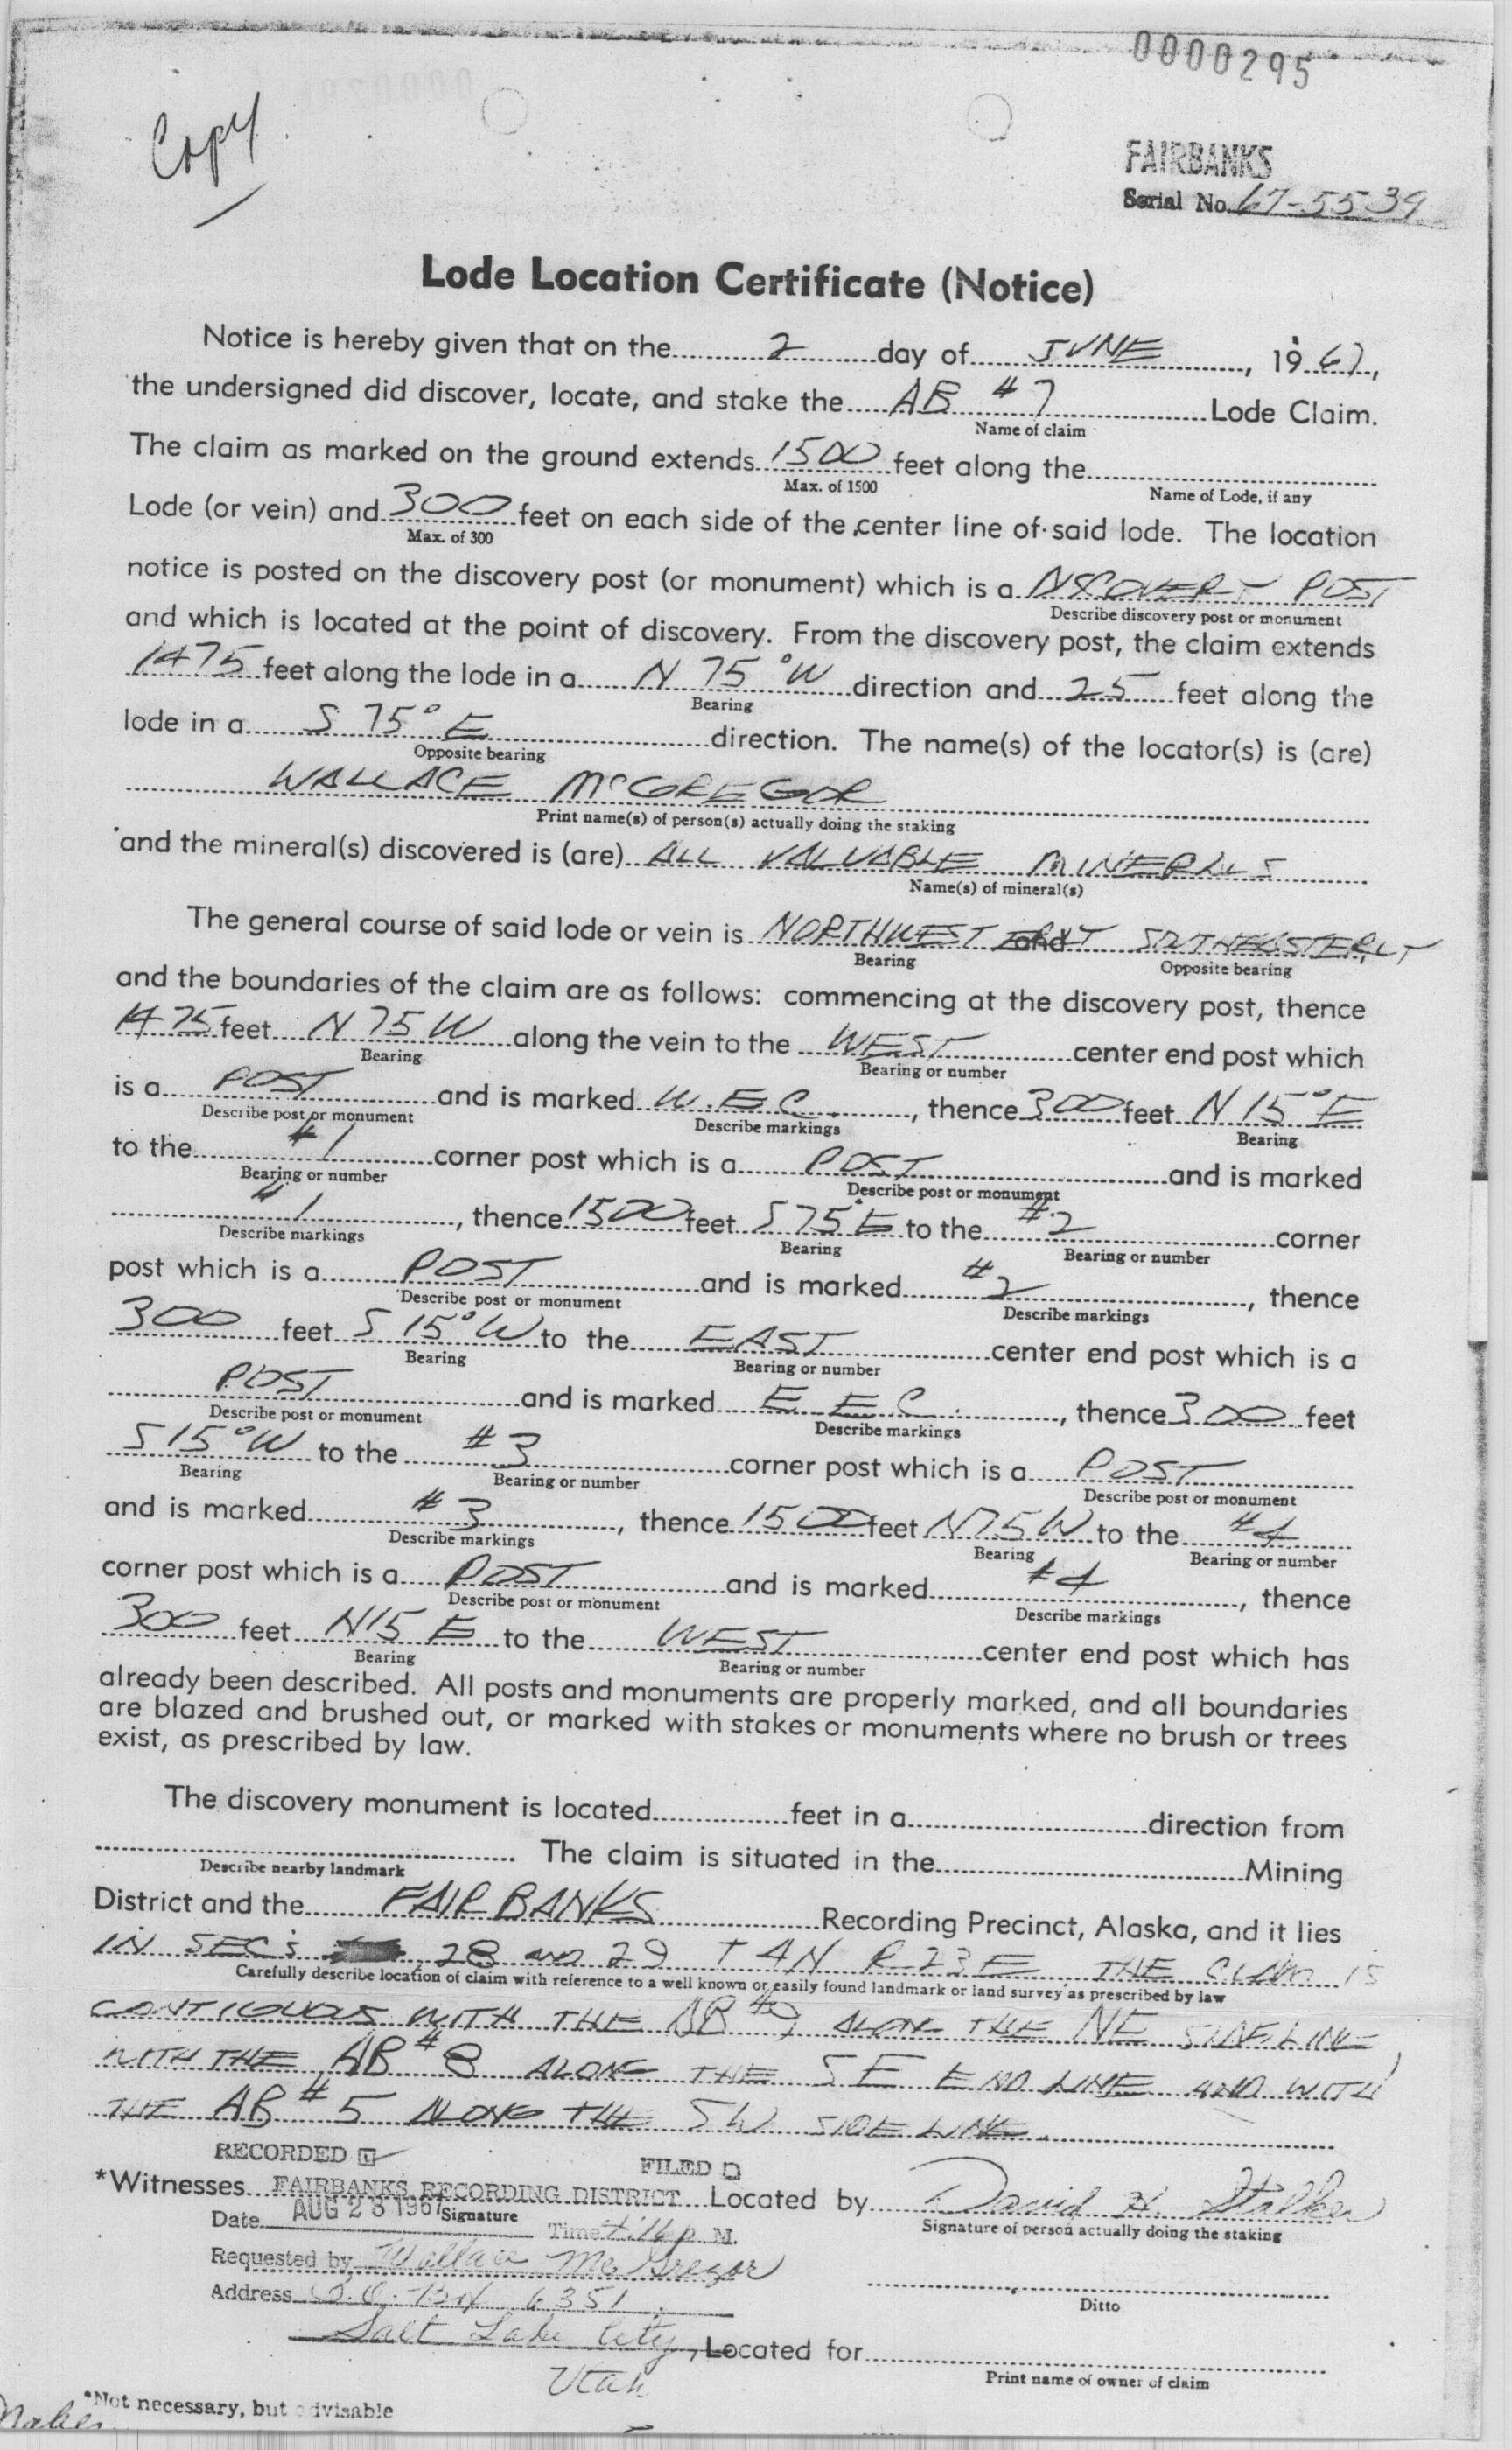 0000295
Copy
FAIRBANKS
Serial No. 67-5539
Lode Location Certificate (Notice)
Notice is hereby given that on the 2 day of JUNE, 1967,
the undersigned did discover, locate, and stake the AB #7 Lode Claim.
Name of claim
The claim as marked on the ground extends 1500 feet along the
Max. of 1500 Name of Lode, if any
Lode (or vein) and 300 feet on each side of the center line of said lode. The location
Max. of 300
notice is posted on the discovery post (or monument) which is a DISCOVERY POST
Describe discovery post or monument
and which is located at the point of discovery. From the discovery post, the claim extends
1475 feet along the lode in a N 75° W direction and 25 feet along the
Bearing
lode in a S 75° E direction. The name(s) of the locator(s) is (are)
Opposite bearing
WALLACE McGREGOR
Print name(s) of person(s) actually doing the staking
and the mineral(s) discovered is (are) ALL VALUABLE MINERALS
Name(s) of mineral(s)
The general course of said lode or vein is NORTHWESTERLY and SOUTHEASTERLY
Bearing Opposite bearing
and the boundaries of the claim are as follows: commencing at the discovery post, thence
1475 feet N 75 W along the vein to the WEST center end post which
Bearing Bearing or number
is a POST and is marked W.E.C., thence 300 feet N 15° E
Describe post or monument Describe markings Bearing
to the #1 corner post which is a POST and is marked
Bearing or number Describe post or monument
#1, thence 1500 feet S 75° E to the #2 corner
Describe markings Bearing Bearing or number
post which is a POST and is marked #2, thence
Describe post or monument Describe markings
300 feet S 15° W to the EAST center end post which is a
Bearing Bearing or number
POST and is marked E E C., thence 300 feet
Describe post or monument Describe markings
S 15° W to the #3 corner post which is a POST
Bearing Bearing or number Describe post or monument
and is marked #3, thence 1500 feet N75W to the #4
Describe markings Bearing Bearing or number
corner post which is a POST and is marked #4, thence
Describe post or monument Describe markings
300 feet N15 E to the WEST center end post which has
Bearing Bearing or number
already been described. All posts and monuments are properly marked, and all boundaries
are blazed and brushed out, or marked with stakes or monuments where no brush or trees
exist, as prescribed by law.
The discovery monument is located feet in a direction from
Describe nearby landmark The claim is situated in the Mining
District and the FAIRBANKS Recording Precinct, Alaska, and it lies
IN SEC'S 28 AND 29 T 4N R 23E THE CLAIM IS
Carefully describe location of claim with reference to a well known or easily found landmark or land survey as prescribed by law
CONTIGUOUS WITH THE AB # ALONG THE NE SIDE LINE,
WITH THE AB #8 ALONG THE SE END LINE AND WITH
THE AB #5 ALONG THE SW SIDE LINE.
RECORDED FILED
*Witnesses FAIRBANKS RECORDING DISTRICT Located by David H. Stalker
Date AUG 23 1967 Signature Time 4:16 p M. Signature of person actually doing the staking
Requested by Wallace McGregor
Address P.O. Box 6351 Ditto
Salt Lake City, Located for
Utah Print name of owner of claim
*Not necessary, but advisable